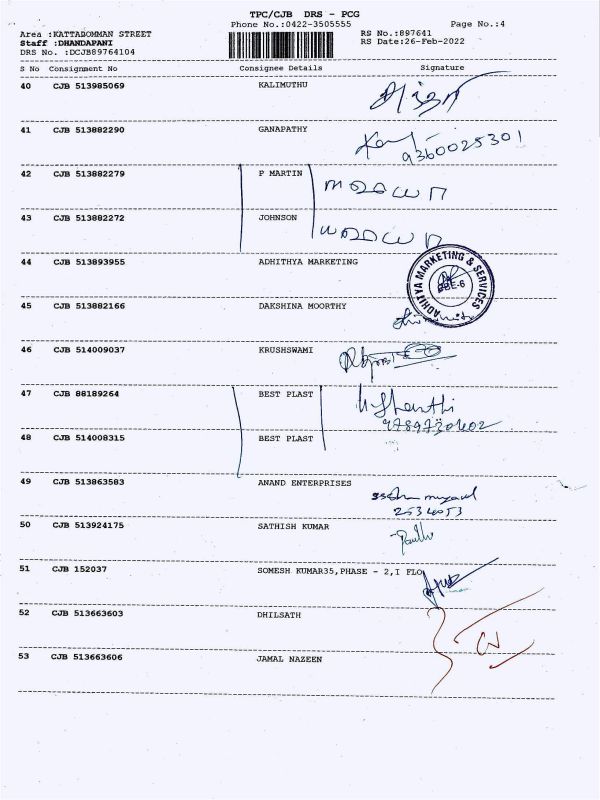 TPC/CJB DRS - PCG
Phone No.:0422-3505555 Page No.:4
Area :KATTABOMMAN STREET RS No.:897641
Staff :DHANDAPANI RS Date:26-Feb-2022
DRS No. :DCJB89764104
S No Consignment No Consignee Details Signature
40 CJB 513985069 KALIMUTHU
41 CJB 513882290 GANAPATHY
9360025301
42 CJB 513882279 P MARTIN
43 CJB 513882272 JOHNSON
44 CJB 513893955 ADHITHYA MARKETING
ADHITYA MARKETING & SERVICES
CBE-6
45 CJB 513882166 DAKSHINA MOORTHY
46 CJB 514009037 KRUSHSWAMI
47 CJB 88189264 BEST PLAST
48 CJB 514008315 BEST PLAST
49 CJB 513863583 ANAND ENTERPRISES
50 CJB 513924175 SATHISH KUMAR
51 CJB 152037 SOMESH KUMAR35,PHASE - 2,I FLO
52 CJB 513663603 DHILSATH
53 CJB 513663606 JAMAL NAZEEN